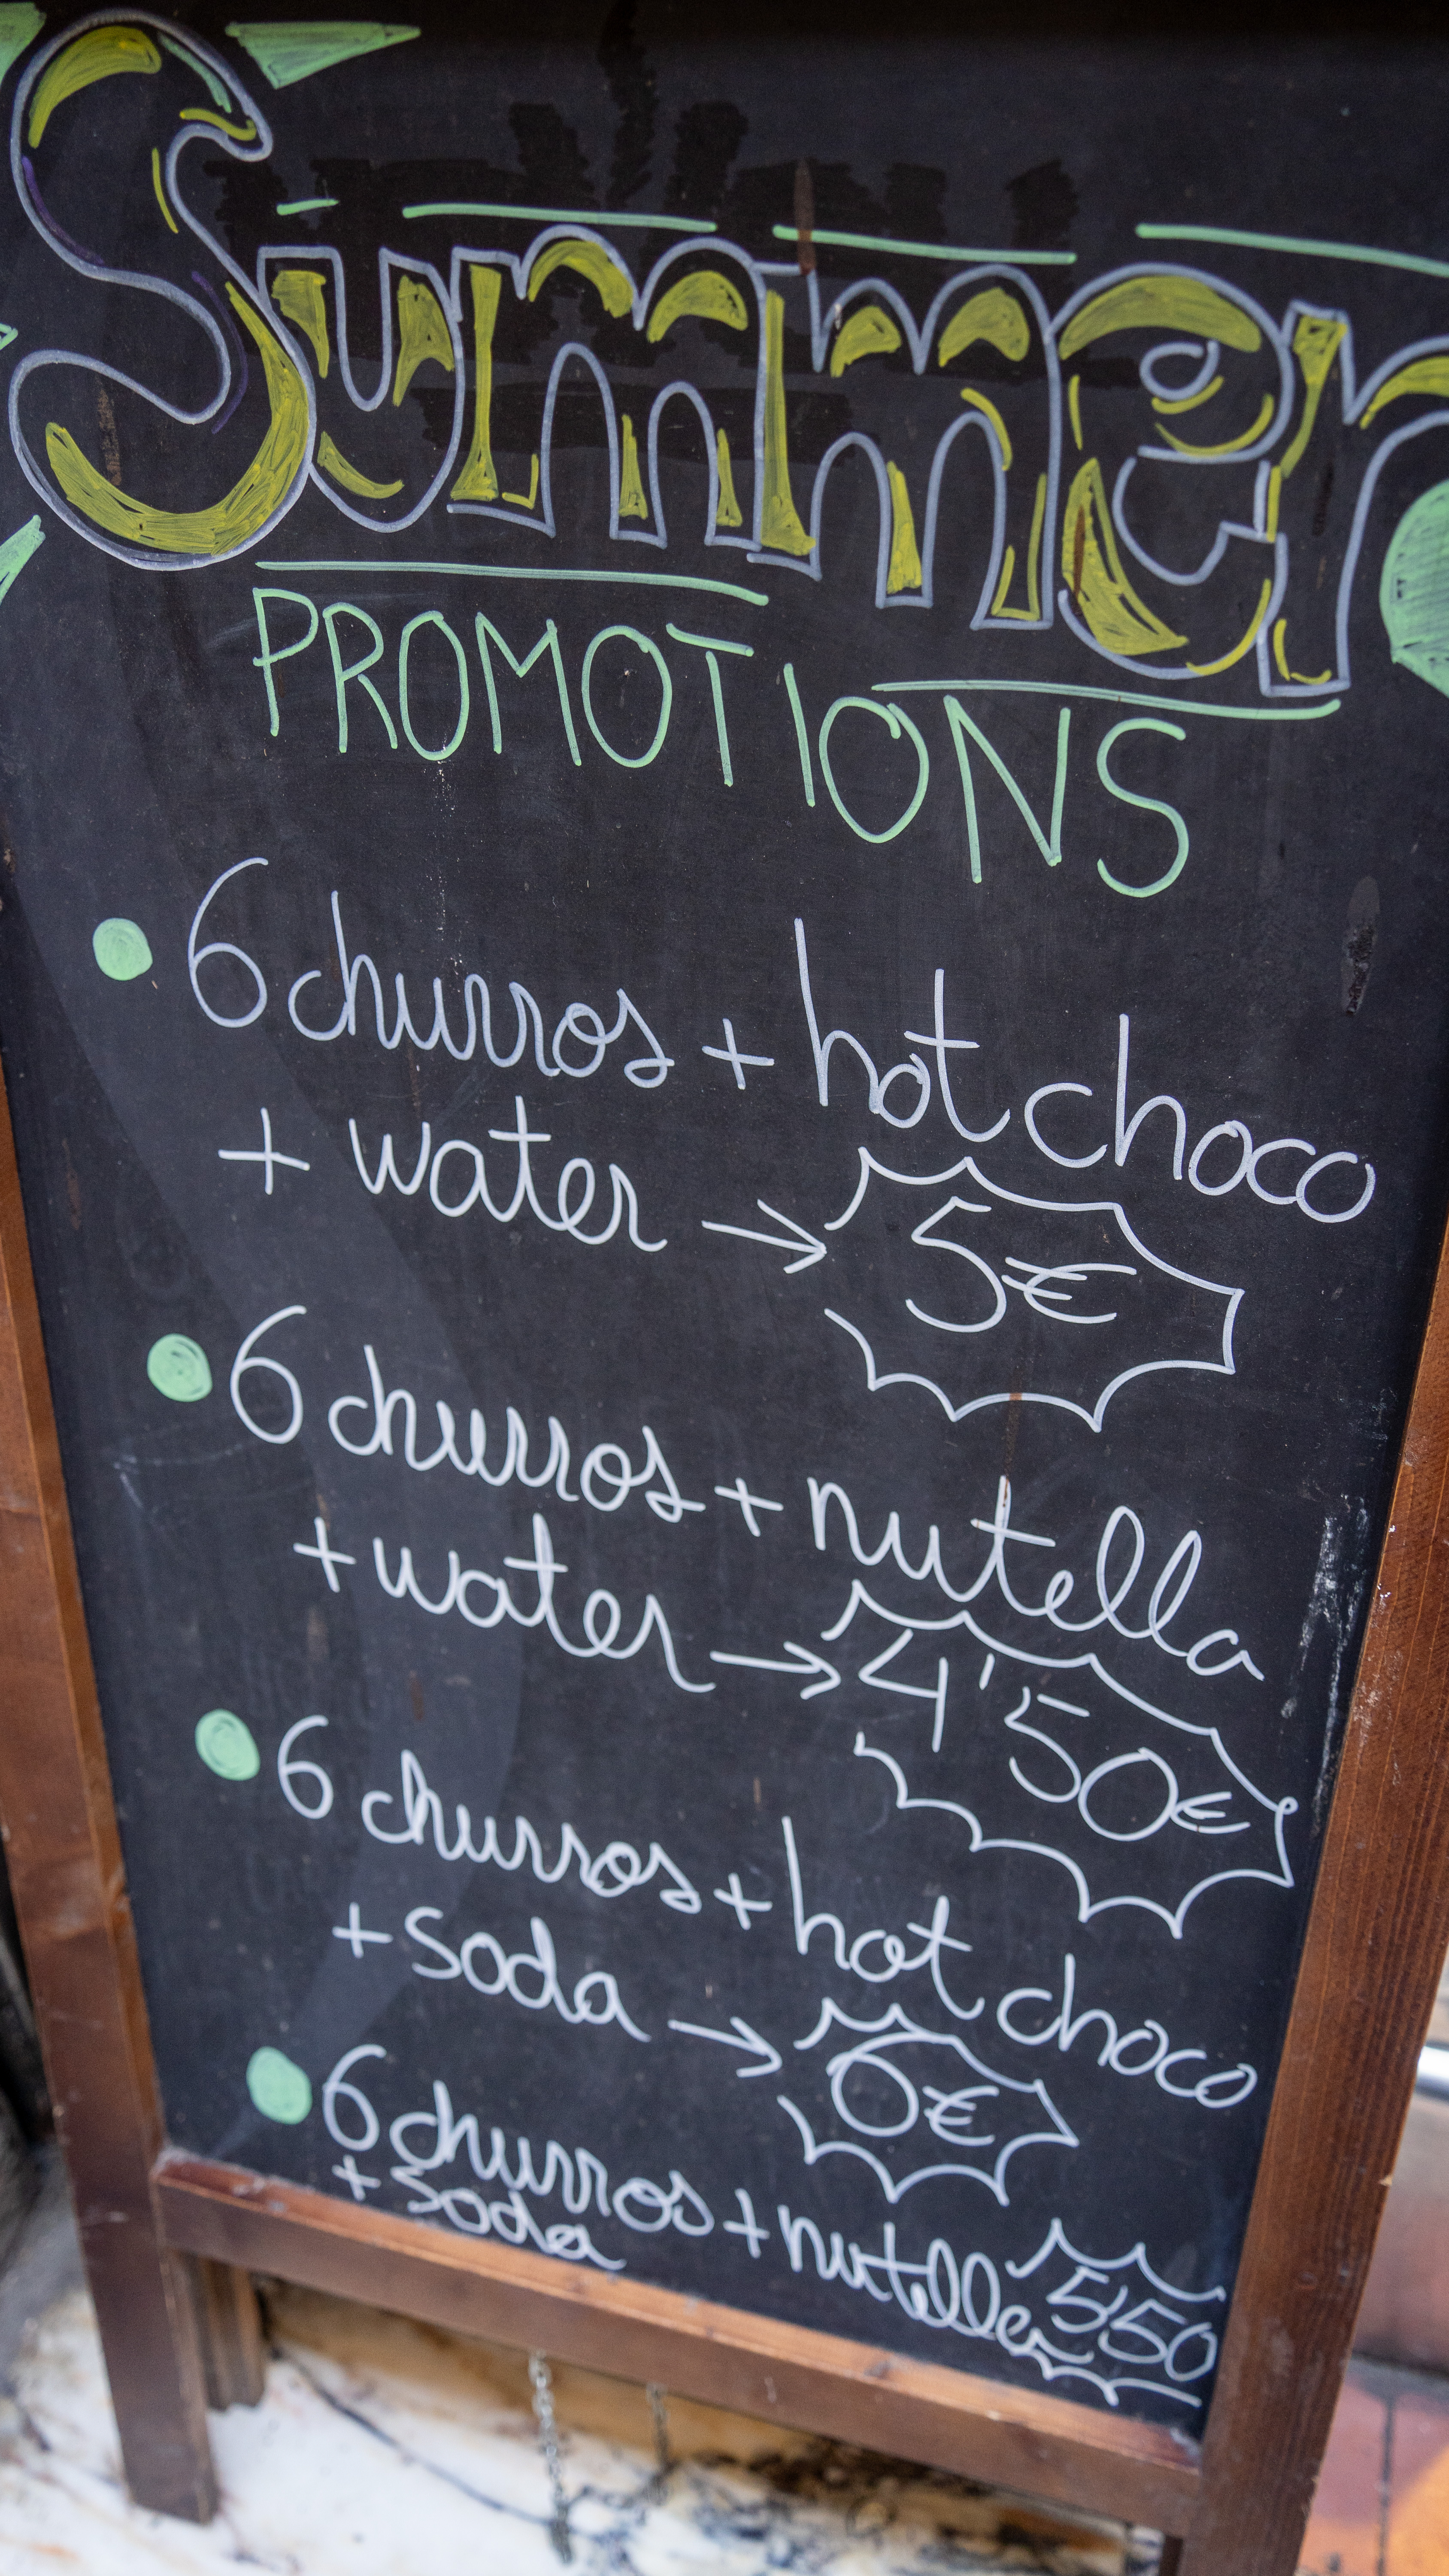 Summer
PROMOTIONS
6 churros + hot choco
+ water → 5€
6 churros + nutella
+ water → 4'50€
6 churros + hot choco
+ soda → 6€
6 churros + nutella 5'50
+ soda